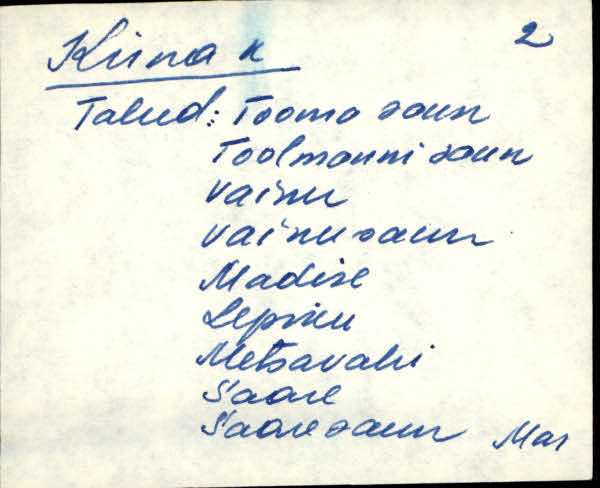 Kiina k 2
Talud: Tooma saun
Toolmanni saun
Vainu
Vainusaun
Madise
Lepiku
Metsavahi
Saare
Saaresaun Mar